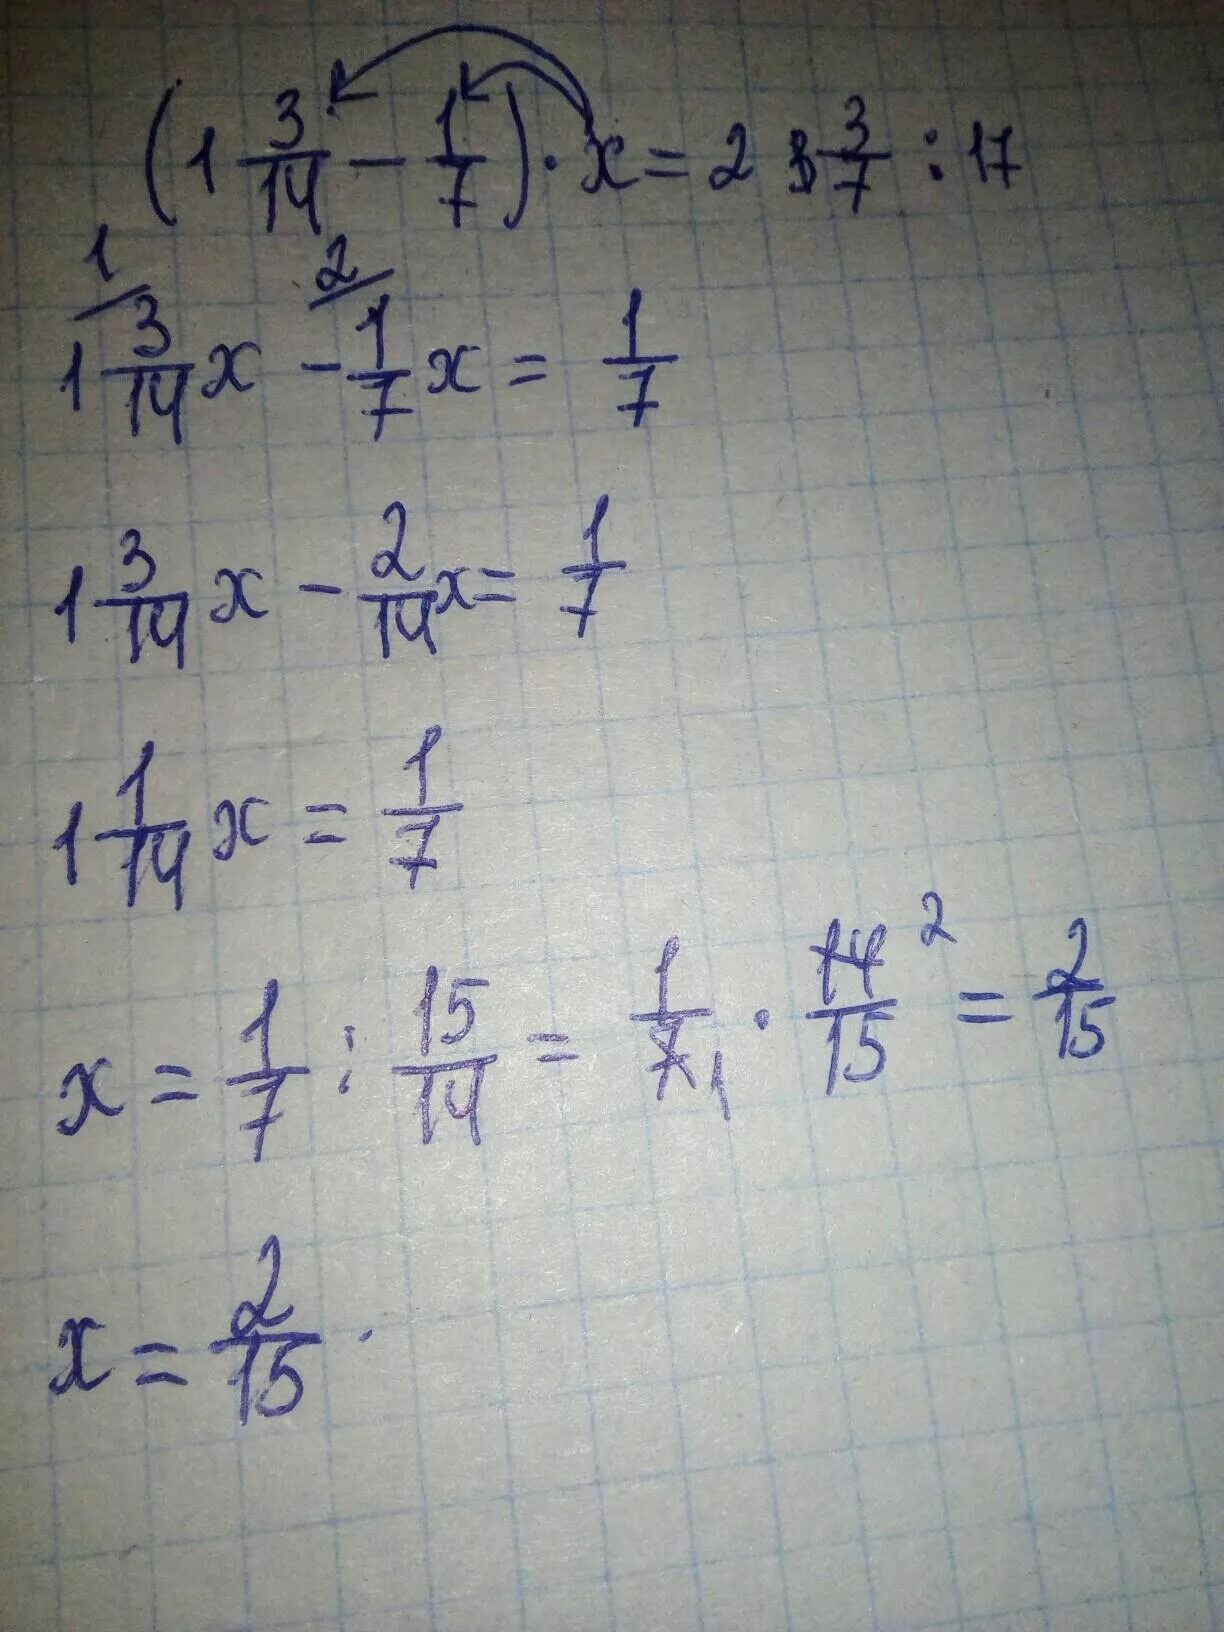 (1 3/14 - 1/7) · x = 2 3/7 : 17
1 3/14 x - 1/7 x = 1/7
1 3/14 x - 2/14 x = 1/7
1 1/14 x = 1/7
x = 1/7 : 15/14 = 1/7 1 · 14/15 2 = 2/15
x = 2/15